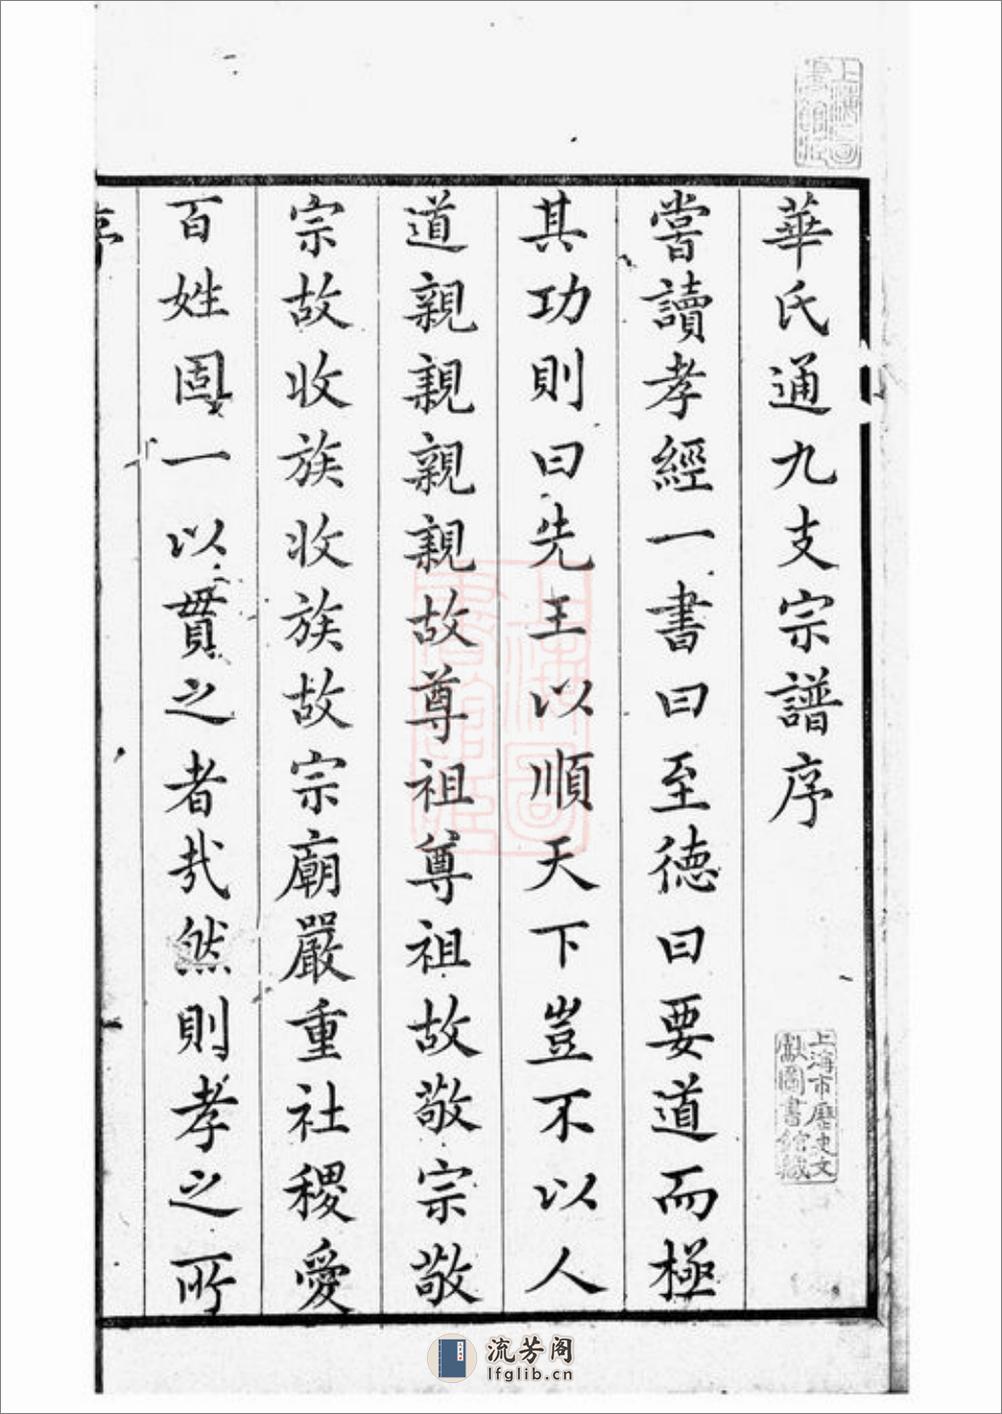 華氏通九支宗譜序
嘗讀孝經一書曰至德曰要道而極
其功則曰先王以順天下豈不以人
道親親親親故尊祖尊祖故敬宗敬
宗故收族收族故宗廟嚴重社稷愛
百姓固一以貫之者哉然則孝之所
序
上海圖書館藏
上海市歷史文獻圖書館藏
上海圖書館藏
流芳阁
lfglib.cn